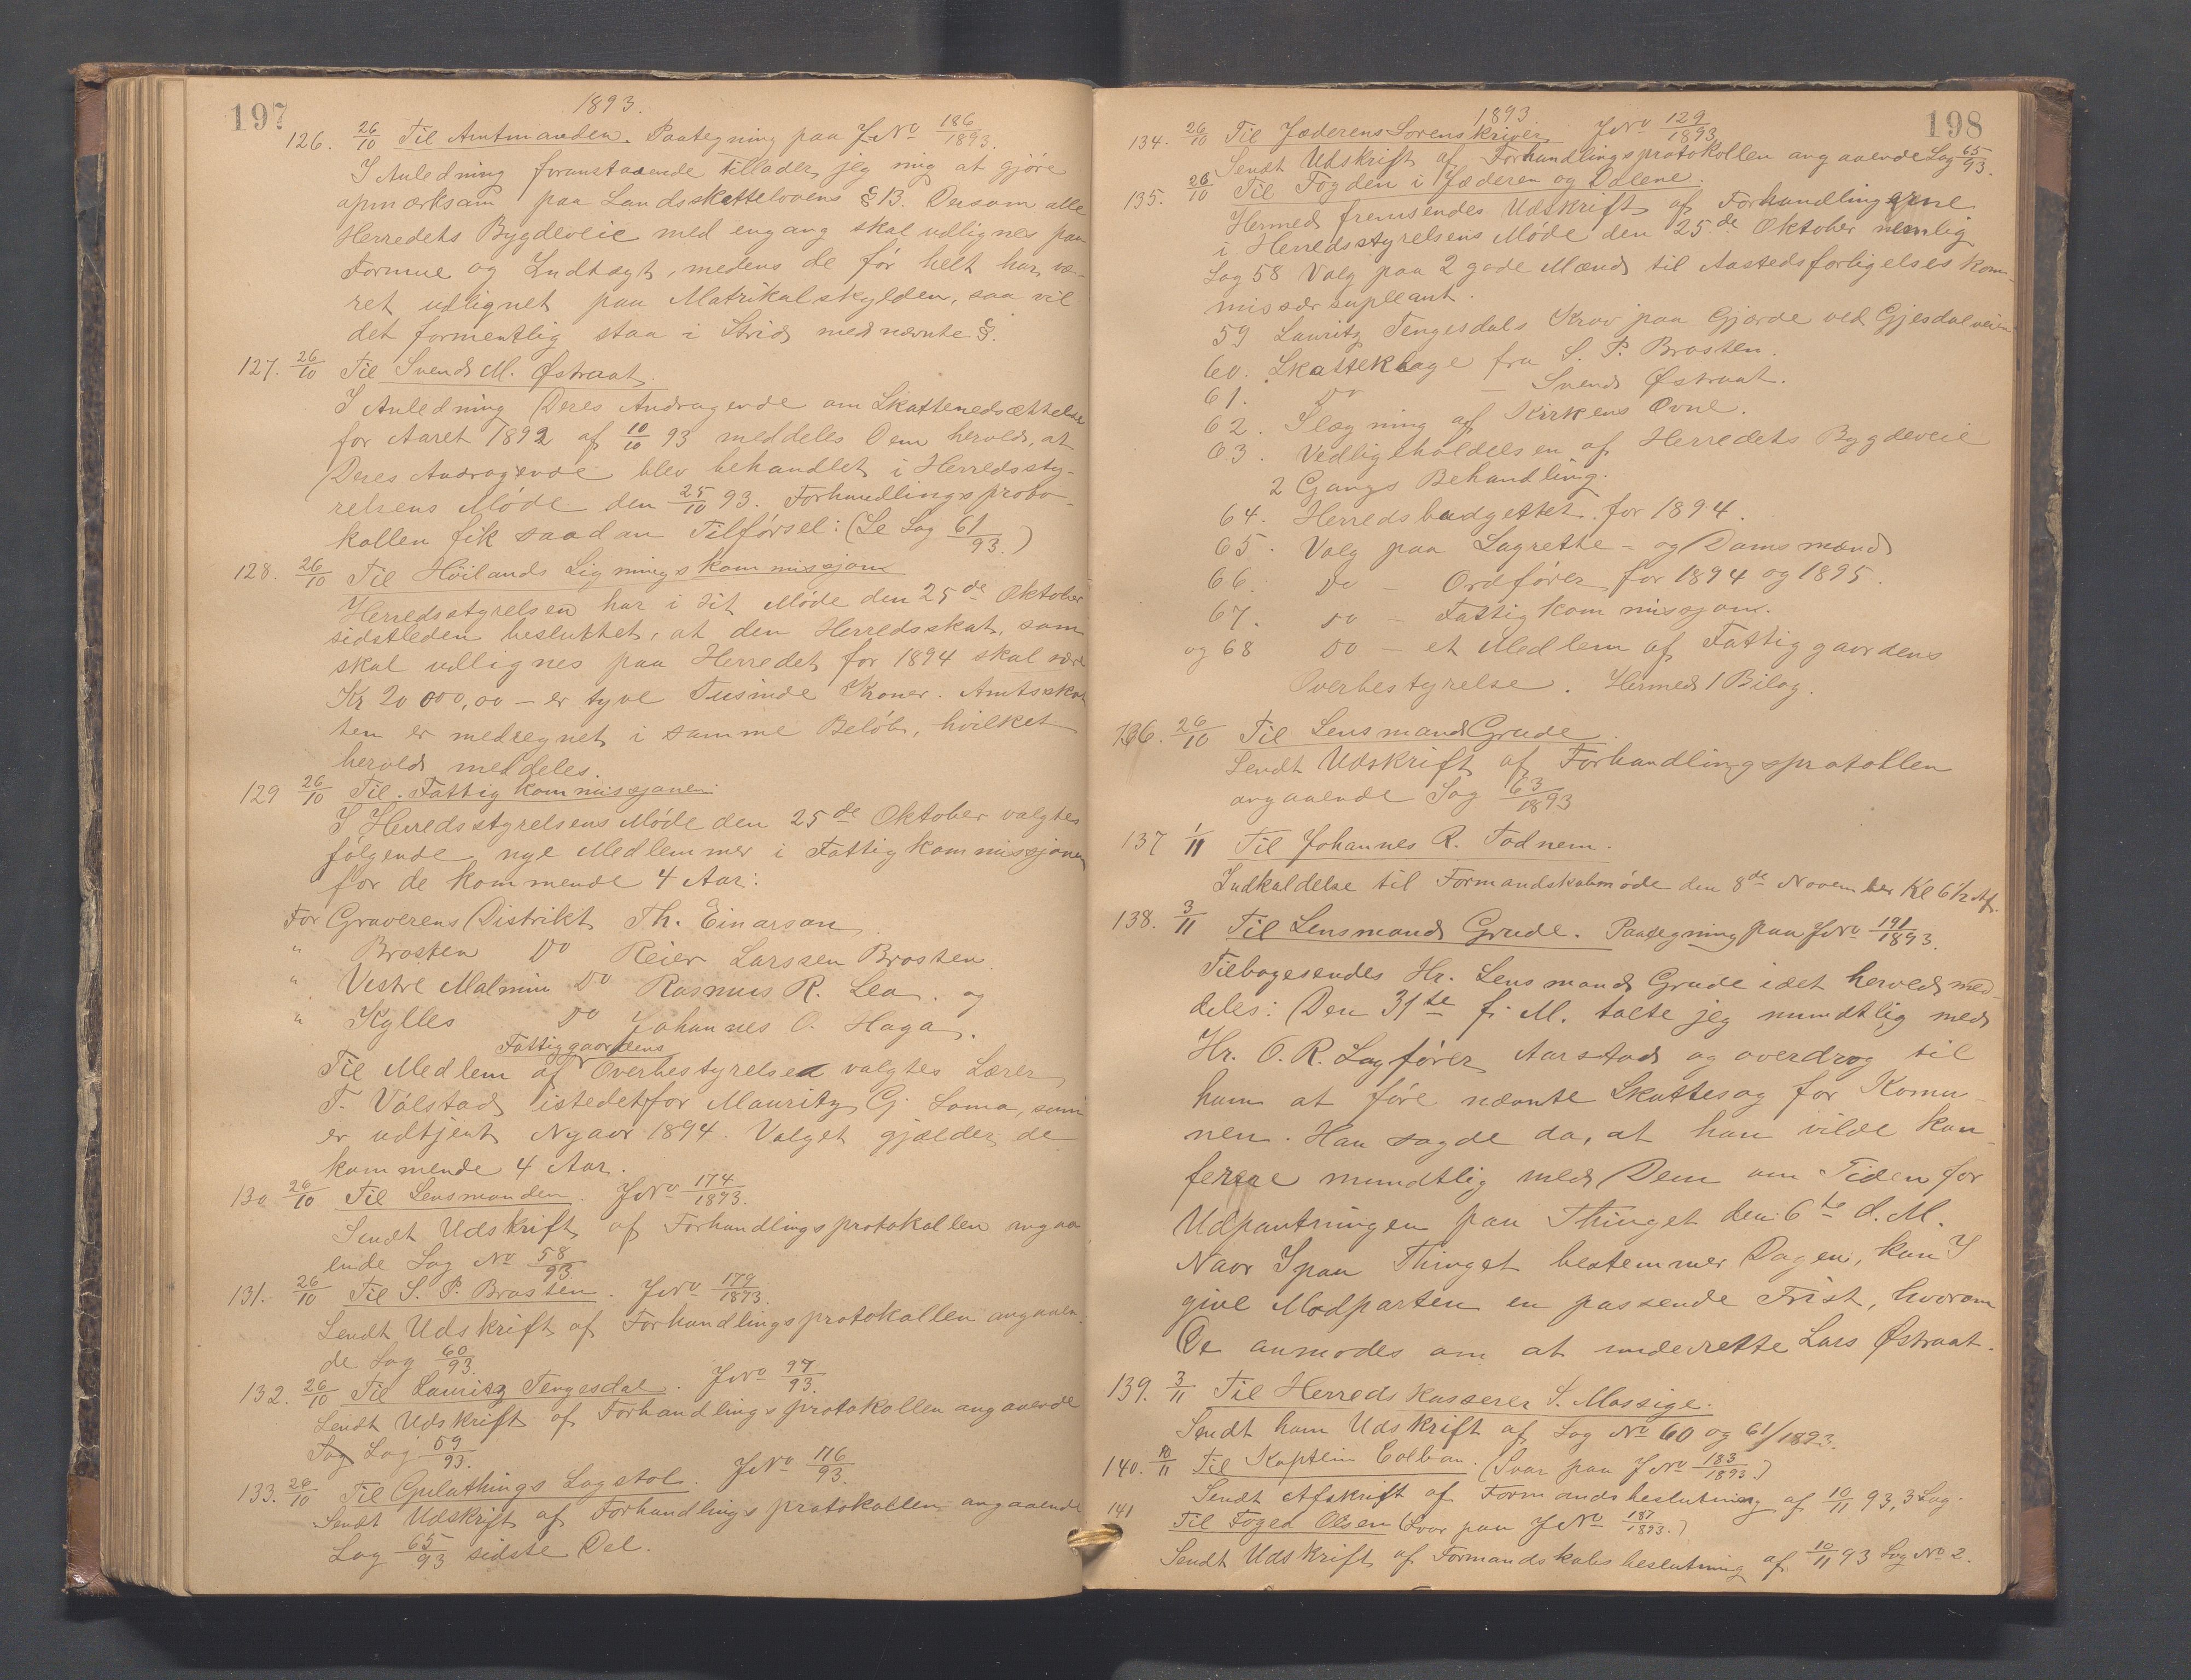 197
1893.
126. 26/10 Til Amtmanden. Paategning paa J.No 186/1893.
I Anledning foranstaaende tillader jeg mig at gjöre
opmærksam paa Landsskattelovens § 13. Dersom alle
Herredets Bygdeveie med engang skal udlignes paa
Formue og Indtægt, medens de för helt har væ-
ret udlignet paa Matrikulskylden, saa vil
det formentlig staa i Strid med nævnte §.
127. 26/10 Til Svend M. Østraat.
I Anledning Deres Andragende om Skattenedsættelse
for Aaret 1892 af 10/10 93 meddeles Dem herved, at
Deres Andragende blev behandlet i Herredssty-
relsens Möde den 25/10 93. Forhandlingsproto-
kollen fik saadan Tilförsel: (Se Sag 61/93.)
128. 26/10 Til Höilands Ligningskommissjon
Herredsstyrelsen har i sit Möde den 25de Oktober
sidstleden besluttet, at den Herredsskat, som
skal udlignes paa Herredet for 1894 skal være
Kr 20 000,00 – er tyve Tusinde Kroner. Amtsskat-
ten er medregnet i samme Belöb, hvilket
herved meddeles.
129 26/10 Til Fattigkommissjonen
I Herredsstyrelsens Möde den 25de Oktober valgtes
fölgende nye Medlemmer i Fattigkommissjonen
for de kommende 4 Aar:
For Graverens Distrikt Th. Einarson
" Brosten Do Reier Larssen Brosten.
" Vestre Malmin Do Rasmus R. Lea. og
" Kylles Do Johannes O. Haga.
Fattiggaardens
Til Medlem af Overbestyrelsen valgtes Lærer
T. Völstad istedetfor Mauritz Gj. Soma, som
er udtjent Nyaar 1894. Valget gjælder de
kommende 4 Aar.
130 26/10 Til Lensmanden. J.No 174/1893.
Sendt Udskrift af Forhandlingsprotokollen angaa-
ende Sag No 58/93.
131. 26/10 Til S. P. Brosten. J.No 179/1893.
Sendt Udskrift af Forhandlingsprotokollen angaaen-
de Sag 60/93.
132. 26/10 Til Lauritz Tengesdal. J.No 97/93.
Sendt Udskrift af Forhandlingsprotokollen angaaende
Sag Sag 59/93.
133. 26/10 Til Gulathings Lagstol. J.No 116/93.
Sendt Udskrift af Forhandlingsprotokollen angaaende
Sag 65/93 sidste Del.
198
1893
134. 26/10 Til Jæderens Sorenskriver J.No 129/1893.
Sendt Udskrift af Forhandlingsprotokollen angaaende Sag 65/93.
135. 26/10 Til Fogden i Jæderen og Dalene.
Hermed fremsendes Udskrift af Forhandlingerne
i Herredsstyrelsens Möde den 25de Oktober nemlig
Sag 58 Valg paa 2 gode Mænd til Aastedsforligelseskom-
missær supleant.
59 Lauritz Tengesdals Krav paa Gjærde ved Gjesdalveien
60. Skatteklage fra S. P. Brosten.
61. Do – Svend Østraat.
62. Ilægning af Kirkens Ovne.
63. Vedligeholdelsen af Herredets Bygdeveie
2 Gangs Behandling.
64. Herredsbudgettet for 1894.
65. Valg paa Lagrette- og Domsmænd
66. Do – Ordförer for 1894 og 1895.
67. Do – Fattigkommissjon.
og 68 Do – et Medlem af Fattiggaardens
Overbestyrelse. Hermed 1 Bilag.
136. 26/10 Til Lensmand Grude.
Sendt Udskrift af Forhandlingsprotokllen
angaaende Sag 63/1893
137 1/11 Til Johannes R. Todnem.
Indkaldelse til Formandskabmöde den 8de November Kl 6½ Af.
138. 3/11 Til Lensmand Grude. Paategning paa J.No 191/1893.
Tilbagesendes Hr. Lensmand Grude idet herved med-
deles: Den 31te f. M. talte jeg mundtlig med
Hr. O. R. Sagförer Aarstad og overdrog til
ham at före nævnte Skattesag for Komu-
nen. Han sagde da, at han vilde kon-
ferere mundtlig med Dem om Tiden for
Udpantningen paa Thinget den 6te d. M.
Naar I paa Thinget bestemmer Dagen, kan I
give Modparten en passende Frist, hvorom
De anmodes om at underrette Lars Østraat.
139. 3/11 Til Herredskasserer S. Mossige.
Sendt ham Udskrift af Sag No 60 og 61/1893.
140. 10/11 Til Kaptein Colban. (Svar paa J.No 183/1893.)
Sendt Afskrift af Formandsbeslutning af 10/11 93, 3 Sag.
141 Til Foged Olsen (Svar paa J.No 187/1893.)
Sendt Udskrift af Formandskabsbeslutning af 10/11 93 Sag No 2.